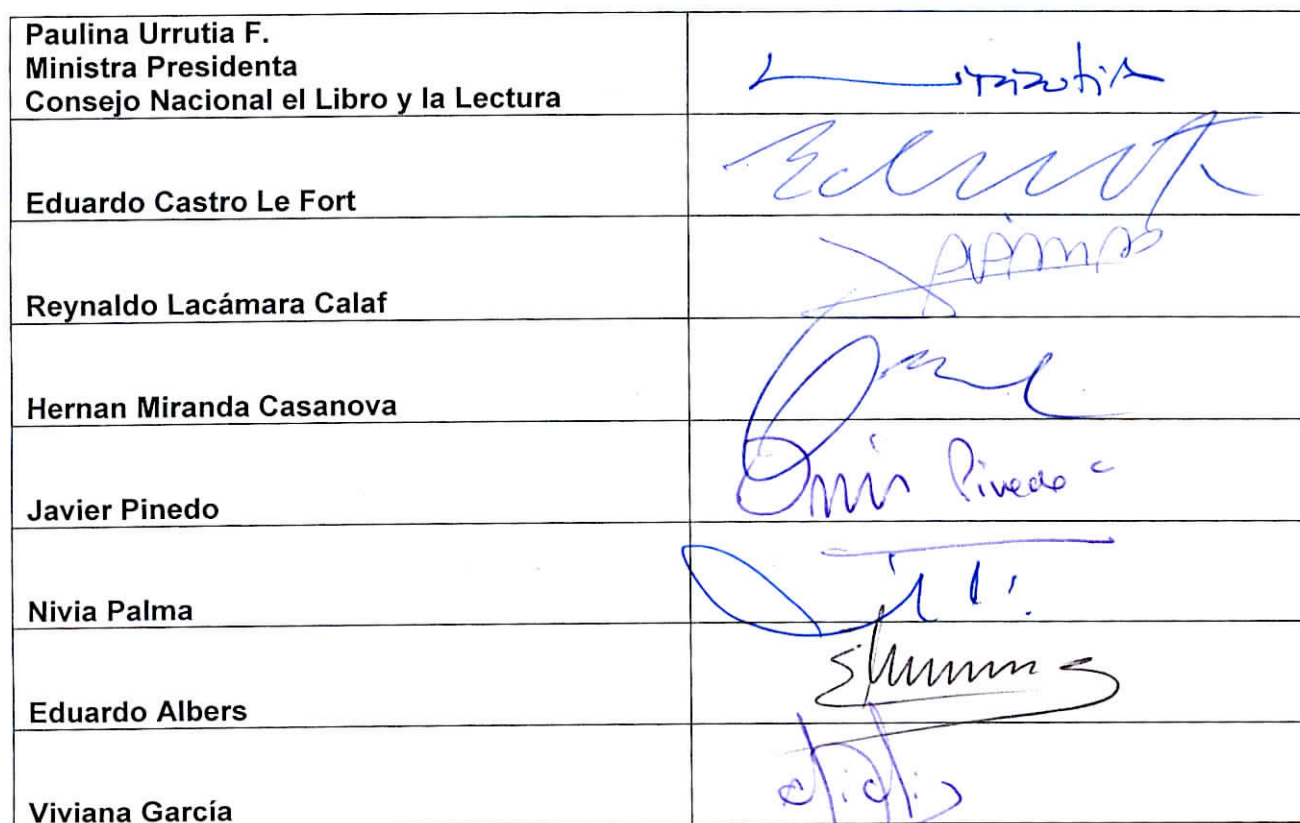 Paulina Urrutia F.
Ministra Presidenta
Consejo Nacional el Libro y la Lectura
Eduardo Castro Le Fort
Reynaldo Lacámara Calaf
Hernan Miranda Casanova
Javier Pinedo
Pinedo
Nivia Palma
Eduardo Albers
Viviana García